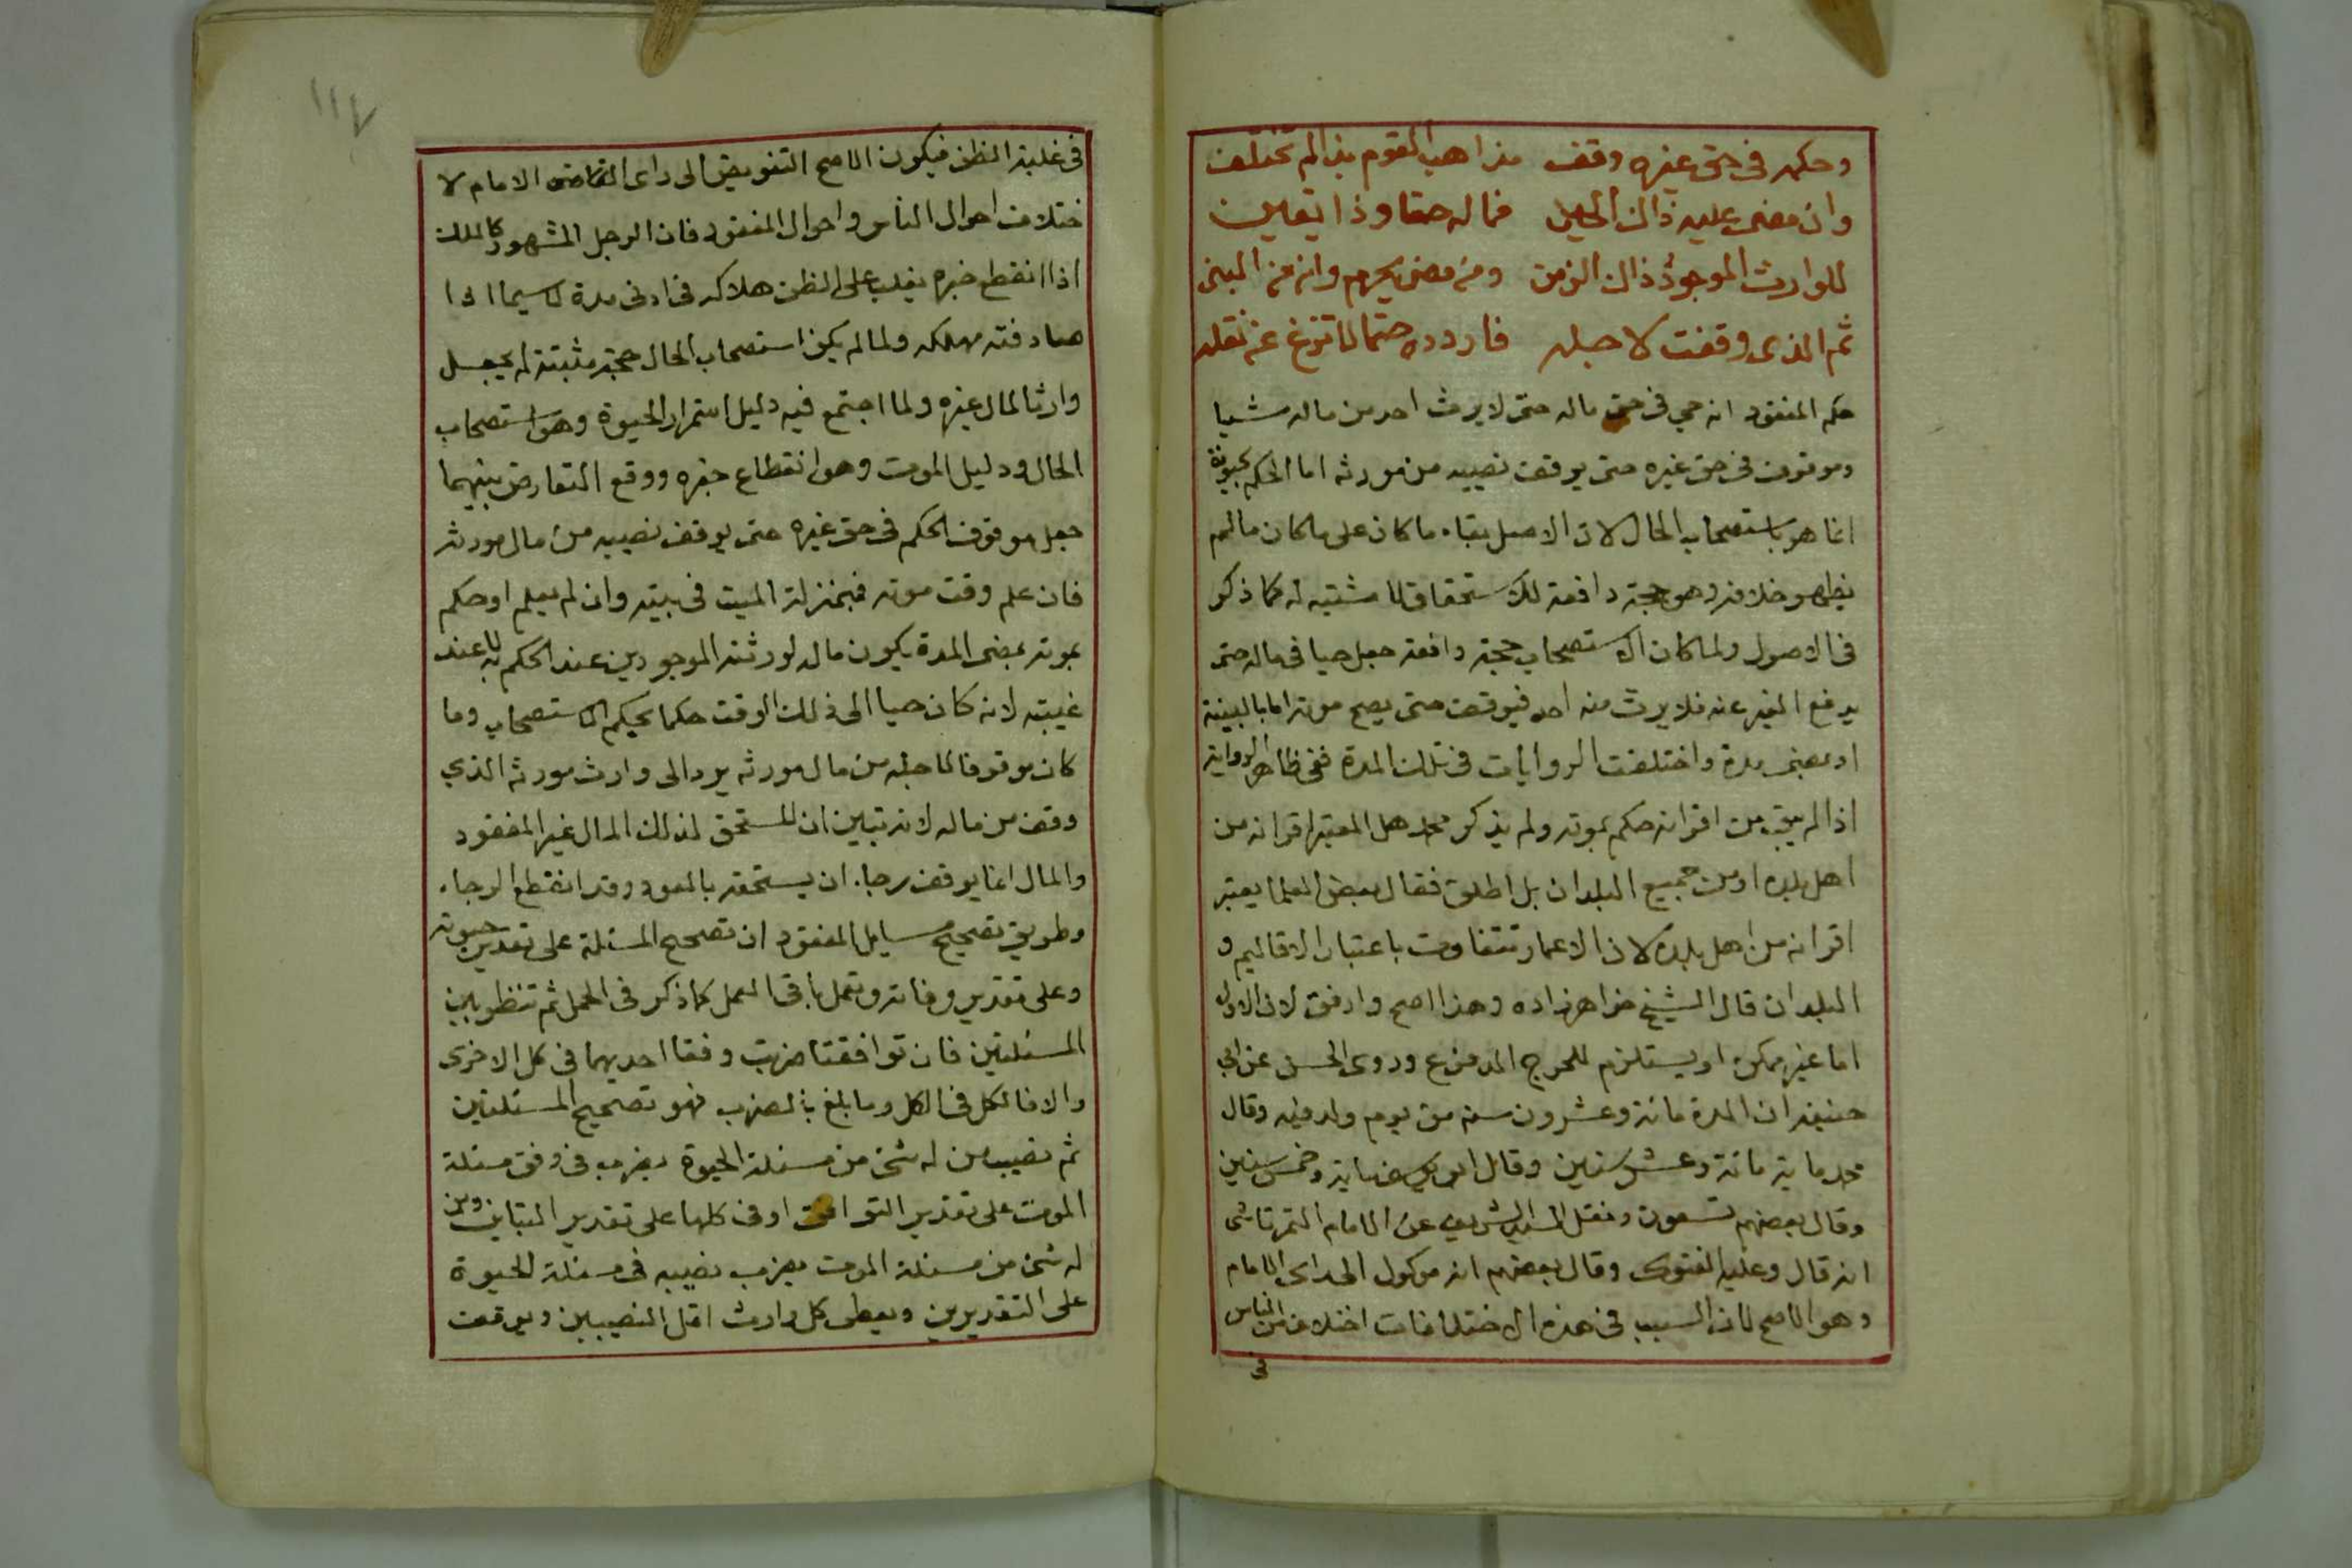 وحكمه في حق غيره وقف مذاهب القوم بذا لم تختلف
وان مضى عليه ذاك الحين فماله حقا وذا يقين
للوارث الموجود ذاك الزمن ومن مضى يحرم وانه من
ثم الذي وقفت لاجله فاردده حتما لا تزغ عن نقله
حكم المفقود انه حي في حق ماله حتى لا يرث احد من ماله شيا
وموقوف في حق غيره حتى يوقف نصيبه من مورثه اما الحكم بحيوته
انما هو باستصحاب الحال لان الاصل بقاء ما كان على ما كان ما لم
يظهر خلافه وهو حجة دافعة للاستحقاق لا مثبتة له كما ذكر
في الاصول ولما كان الاستصحاب حجة دافعة جعل حيا في ماله حتى
يدفع الغير عنه فلا يرث منه احد فيوقف حتى يصح موته اما بالبينة
او بمضى مدة واختلفت الروايات في تلك المدة ففي ظاهر الرواية
اذا لم يبق من اقرانه حكم بموته ولم يذكر محمد هل المعتبر اقرانه من
اهل بلده او من جميع البلدان بل اطلق فقال بعض العلما يعتبر
اقرانه من اهل بلده لان الاعمار تتفاوت باعتبار الاقاليم و
البلدان قال الشيخ خواهرزاده وهذا اصح وارفق لان الاول
اما غير ممكن او يستلزم للحرج المدفوع وروى الحسن عن ابي
حنيفه ان المدة مائة وعشرون سنه من يوم ولد فيه وقال
محمد ماية مائة وعشر سنين وقال ابو يوسف ماية وخمس سنين
وقال بعضهم تسعون ونقل السيد الشريف عن الامام التمرتاشى
انه قال وعليه الفتوى وقال بعضهم انه موكول الى راى الامام
وهو الاصح لان السبب في هذه الاختلافات اختلاف من الناس
في
١١٧
في غلبة الظن فيكون الاصح التفويض الى راى القاضى الامام لا
ختلاف احوال الناس واحوال المفقود فان الرجل المشهور كالملك
اذا انقطع خبره يغلب على الظن هلاكه في ادنى مدة لا سيما اذا
صادفته مهلكه ولما لم يكن استصحاب الحال حجة مثبتة لم يجعل
وارثا لمال غيره ولما اجتمع فيه دليل استمرار الحيوة وهو استصحاب
الحال ودليل الموت وهو انقطاع خبره ووقع التعارض بينهما
جعل موقوف الحكم في حق غيره حتى يوقف نصيبه من مال مورثه
فان علم وقت موته فبمنزلة الميت في بيته وان لم يعلم او حكم
بموته بمضى المدة يكون ماله لورثته الموجودين عند الحكم به لا عند
غيبته لانه كان حيا الى ذلك الوقت حكما بحكم الاستصحاب وما
كان موقوفا لاجله من مال مورثه يرد الى وارث مورثه الذي
وقف من ماله لانه تبين ان المستحق لذلك المال غير المفقود
والمال انما يوقف رجاء ان يستحقه بالعود وقد انقطع الرجاء
وطريق تصحيح مسايل المفقود ان تصحح المسئلة على تقدير حيوته
وعلى تقدير وفاته وتعمل باقى العمل كما ذكر في الحمل ثم تنظر بين
المسئلتين فان توافقتا ضربت وفقا احديهما في كل الاخرى
والا فالكل في الكل وما بلغ بالضرب فهو تصحيح المسئلتين
ثم نصيب من له شئ من مسئلة الحيوة يضرب في وفق مسئلة
الموت على تقدير التوافق او في كلها على تقدير التباين ومن
له شئ من مسئلة الموت يضرب نصيبه في مسئلة الحيوة
على التقديرين ويعطى كل وارث اقل النصيبين ويوقف